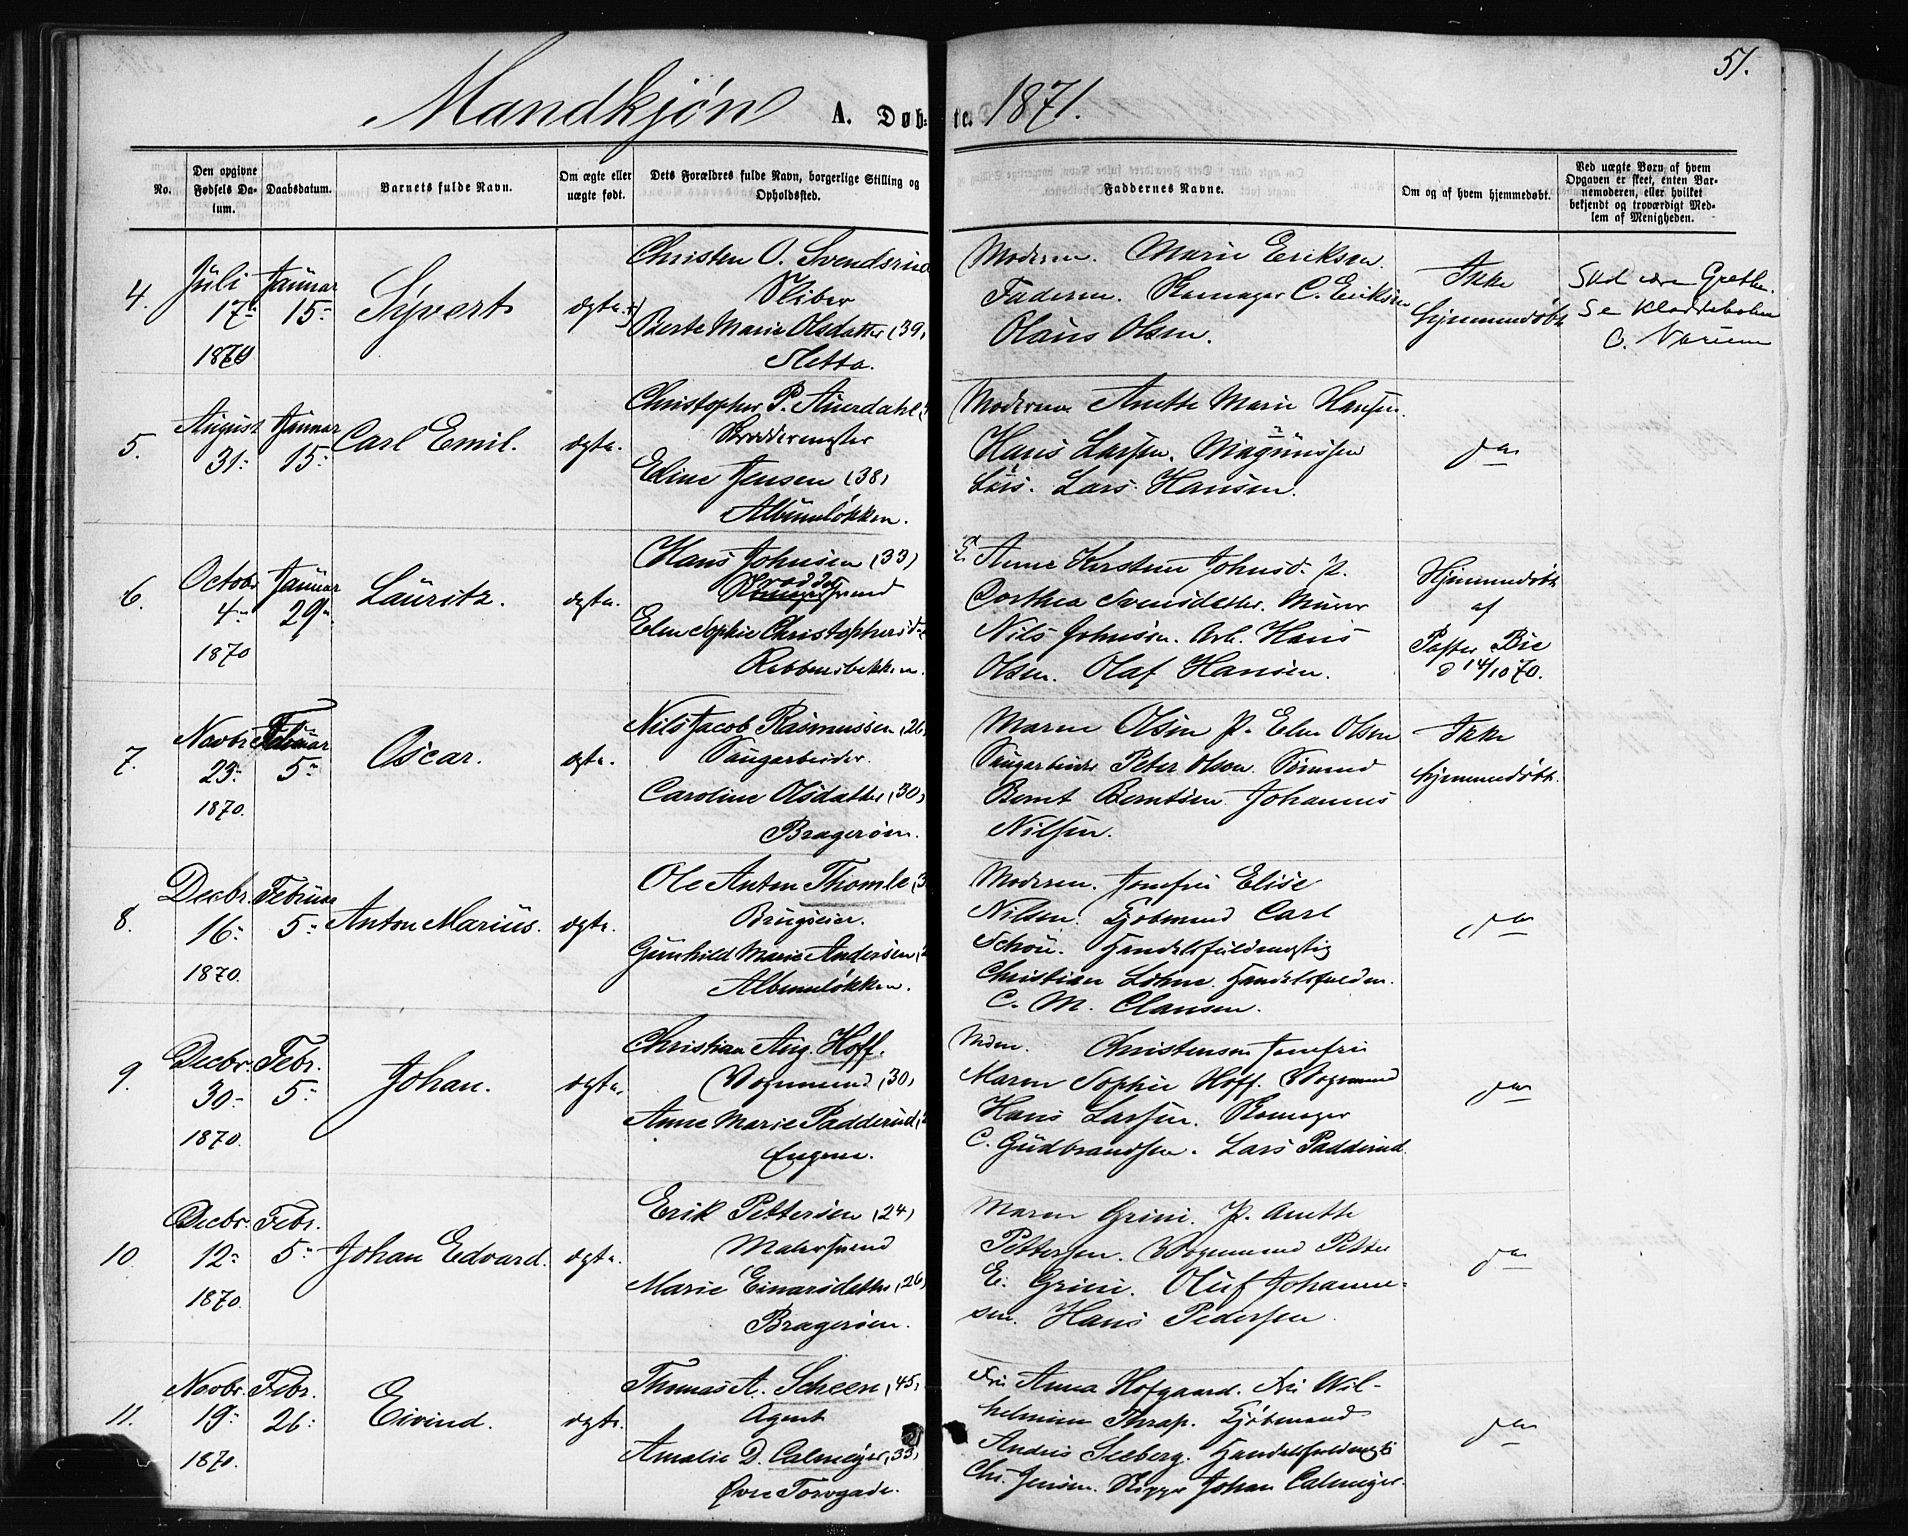 51.
Mandkjön A. Døb-te. 1871.
No.
Den opgivne Fødsels Da-tum.
Daabsdatum.
Barnets fulde Navn.
Om ægte eller uægte født.
Dets Forældres fulde Navn, borgerlige Stilling og Opholdssted.
Faddernes Navne.
Om og af hvem hjemmedøbt.
Ved uægte Børn af hvem Opgaven er skeet, enten Bar-nemoderen, eller hvilket bekjendt og troværdigt Med-lem af Menigheden.
4.
Juli 17- 1870
Januar 15-
Syvert
ægte
Christen O. Svendsrud
Sliber
Berte Marie Olsdatter (39)
Sletta.
Moderen. Marie Eriksen.
Faderen. Skomager C. Eriksen
Olaus Olsen.
Ikke
hjemmedøbt
Skal være Grethe.
Se Kladdeboken
5.
August 31-
Januar 15-
Carl Emil.
ægte.
Christopher P. Auerdahl
Skreddermester
Eline Jensen (38)
Albumløkken.
Moderen Anette Marie Hansen.
Hans Larsen. Magnussen
Lars Hansen.
do
6.
Octobr 4- 1870
Januar 29-
Lauritz.
ægte.
Hans Johnsen (33)
Elen Sophie Christophersd-
Rebbensbekken.
Anne Kirstine Johnsd. P.
Dorthea Svensdatter. Murer
Nils Johnsen. Arb. Hans
Olsen. Olaf Hansen.
Hjemmedøbt
af
Pastor Bie
d 14/10 70.
7.
Novbr 23- 1870.
Februar 5-
Oscar.
ægte.
Nils Jacob Rasmussen (26)
Saugarbeider.
Caroline Olsdatter (30)
Bragerøen.
Maren Olsen P. Elen Olsen
Saugarbeider Peter Olsen. Sømand
Bernt Berntsen Johannes
Nilsen.
Ikke
hjemmedøbt.
8.
Decbr. 16- 1870.
Februar 5-
Anton Marius.
ægte.
Ole Anton Thomle
Brugseier.
Gunhild Marie Andersen
Albumløkken.
Moderen. Jomfru Elise
Nilsen. Kjøbmand Carl
Schou. Handelsfuldmægtig
Christian Løhne. Handelsfuldm.
C. M. Clausen.
do
9.
Decbr. 30- 1870.
Febr. 5-
Johan.
ægte.
Christian Aug. Hoff.
Vognmand (30)
Anne Marie Padderud
Engene.
Moderen. Christensen Jomfru
Maren Sophie Hoff. Vognmand
Hans Larsen. Skomager
C. Gudbrandsen. Lars Padderud
do
10.
Decbr. 12- 1870.
Febr. 5-
Johan Edvard.
ægte.
Erik Pettersen (24)
Malersvend
Marie Einarsdatter (26)
Bragerøen.
Maren Grini. P. Anette
Pettersen. Vognmand Petter
E. Grini. Oluf Johanne-
sen. Hans Pedersen.
do
11.
Novbr. 19- 1870.
Febr. 26-
Eivind.
ægte.
Thomas A. Scheen (45)
Agent
Amalie D. Calmeyer (33)
Øvre Torvgade.
Fru Anna Hofgaard. Fru Wil-
helmine Thrap. Kjøbmand
Andreas Seeberg. Handelsfuldmægtig
Chr. Jensen. Skipper Johan Calmeyer.
do